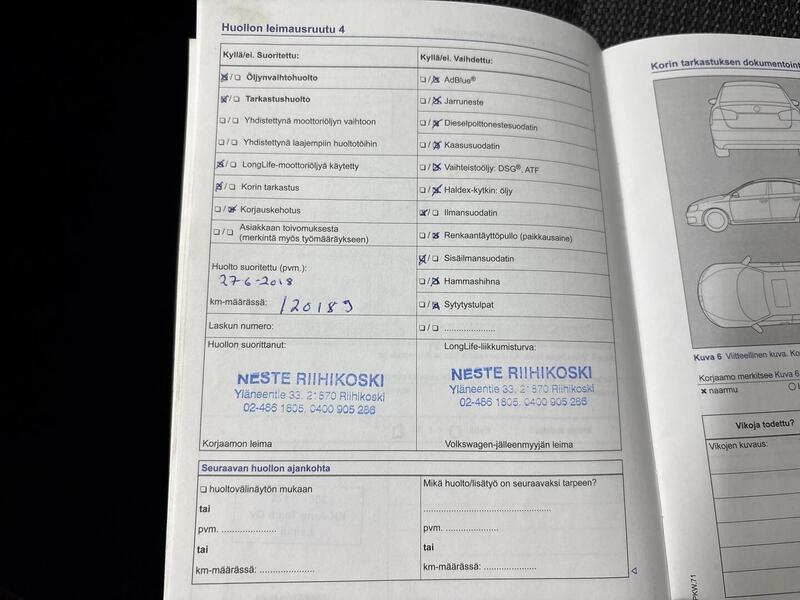 Huollon leimausruutu 4
Kyllä/ei. Suoritettu:
☒/☐ Öljynvaihtohuolto
☒/☐ Tarkastushuolto
☐/☐ Yhdistettynä moottoriöljyn vaihtoon
☐/☐ Yhdistettynä laajempiin huoltotöihin
☒/☐ LongLife-moottoriöljyä käytetty
☒/☐ Korin tarkastus
☐/☒ Korjauskehotus
☐/☐ Asiakkaan toivomuksesta
(merkintä myös työmääräykseen)
Huolto suoritettu (pvm.):
27-6-2018
km-määrässä: 120189
Laskun numero:
Kyllä/ei. Vaihdettu:
☐/☒ AdBlue®
☐/☒ Jarruneste
☐/☒ Dieselpolttonestesuodatin
☐/☒ Kaasusuodatin
☐/☒ Vaihteistoöljy: DSG®, ATF
☐/☒ Haldex-kytkin: öljy
☒/☐ Ilmansuodatin
☐/☒ Renkaantäyttöpullo (paikkausaine)
☒/☐ Sisäilmansuodatin
☐/☒ Hammashihna
☐/☒ Sytytystulpat
☐/☐ .....................
Huollon suorittanut:
NESTE RIIHIKOSKI
Yläneentie 33, 21870 Riihikoski
02-486 1805, 0400 905 286
Korjaamon leima
LongLife-liikkumisturva:
NESTE RIIHIKOSKI
Yläneentie 33, 21870 Riihikoski
02-486 1805, 0400 905 286
Volkswagen-jälleenmyyjän leima
Seuraavan huollon ajankohta
☐ huoltovälinäytön mukaan
tai
pvm. .....................
tai
km-määrässä: .....................
Mikä huolto/lisätyö on seuraavaksi tarpeen?
.....................
pvm. .....................
tai
km-määrässä: .....................
Korin tarkastuksen dokumentoint
Kuva 6 Viitteellinen kuva. Ko
Korjaamo merkitsee Kuva 6
× naarmu
Vikoja todettu?
Vikojen kuvaus:
PKW.71